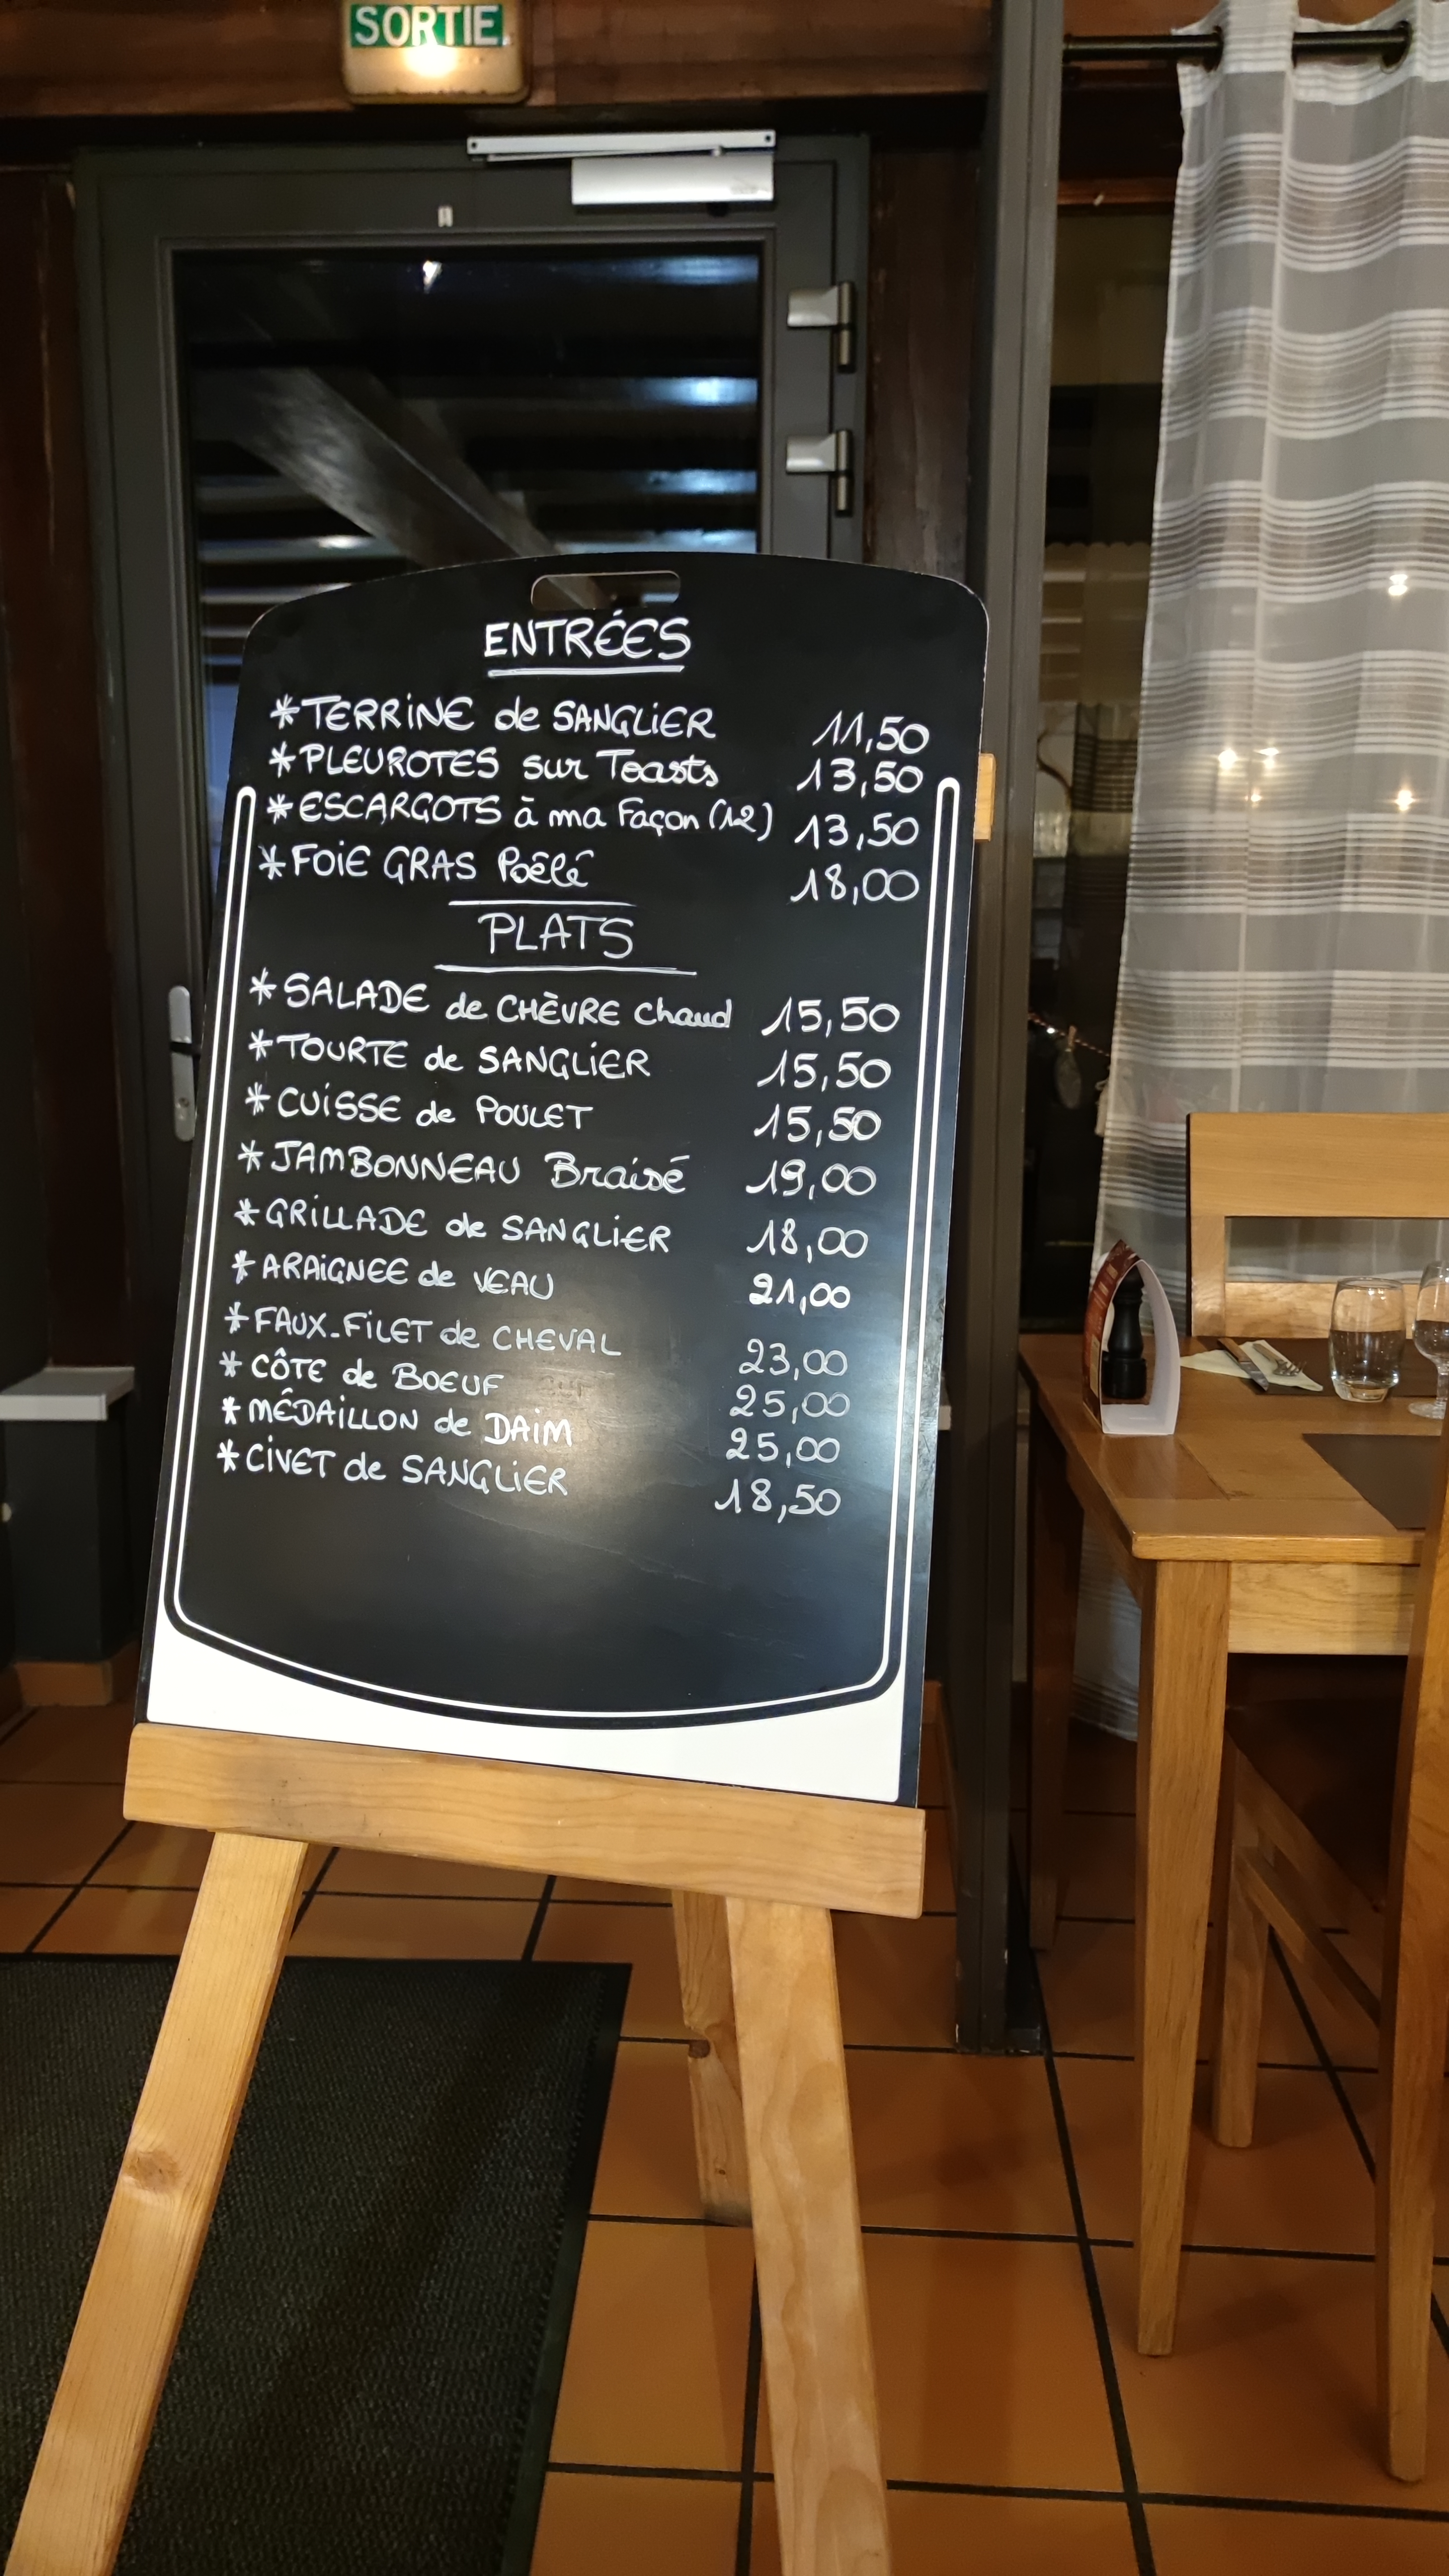 SORTIE
ENTRÉES
*TERRINE de SANGLIER 11,50
*PLEUROTES sur Toasts 13,50
*ESCARGOTS à ma Façon (12) 13,50
*FOIE GRAS Poêlé 18,00
PLATS
*SALADE de CHÈVRE chaud 15,50
*TOURTE de SANGLIER 15,50
*CUISSE de POULET 15,50
*JAMBONNEAU Braisé 19,00
*GRILLADE de SANGLIER 18,00
*ARAIGNEE de VEAU 21,00
*FAUX-FILET de CHEVAL 23,00
*CÔTE de BOEUF 25,00
*MÉDAILLON de DAIM 25,00
*CIVET de SANGLIER 18,50